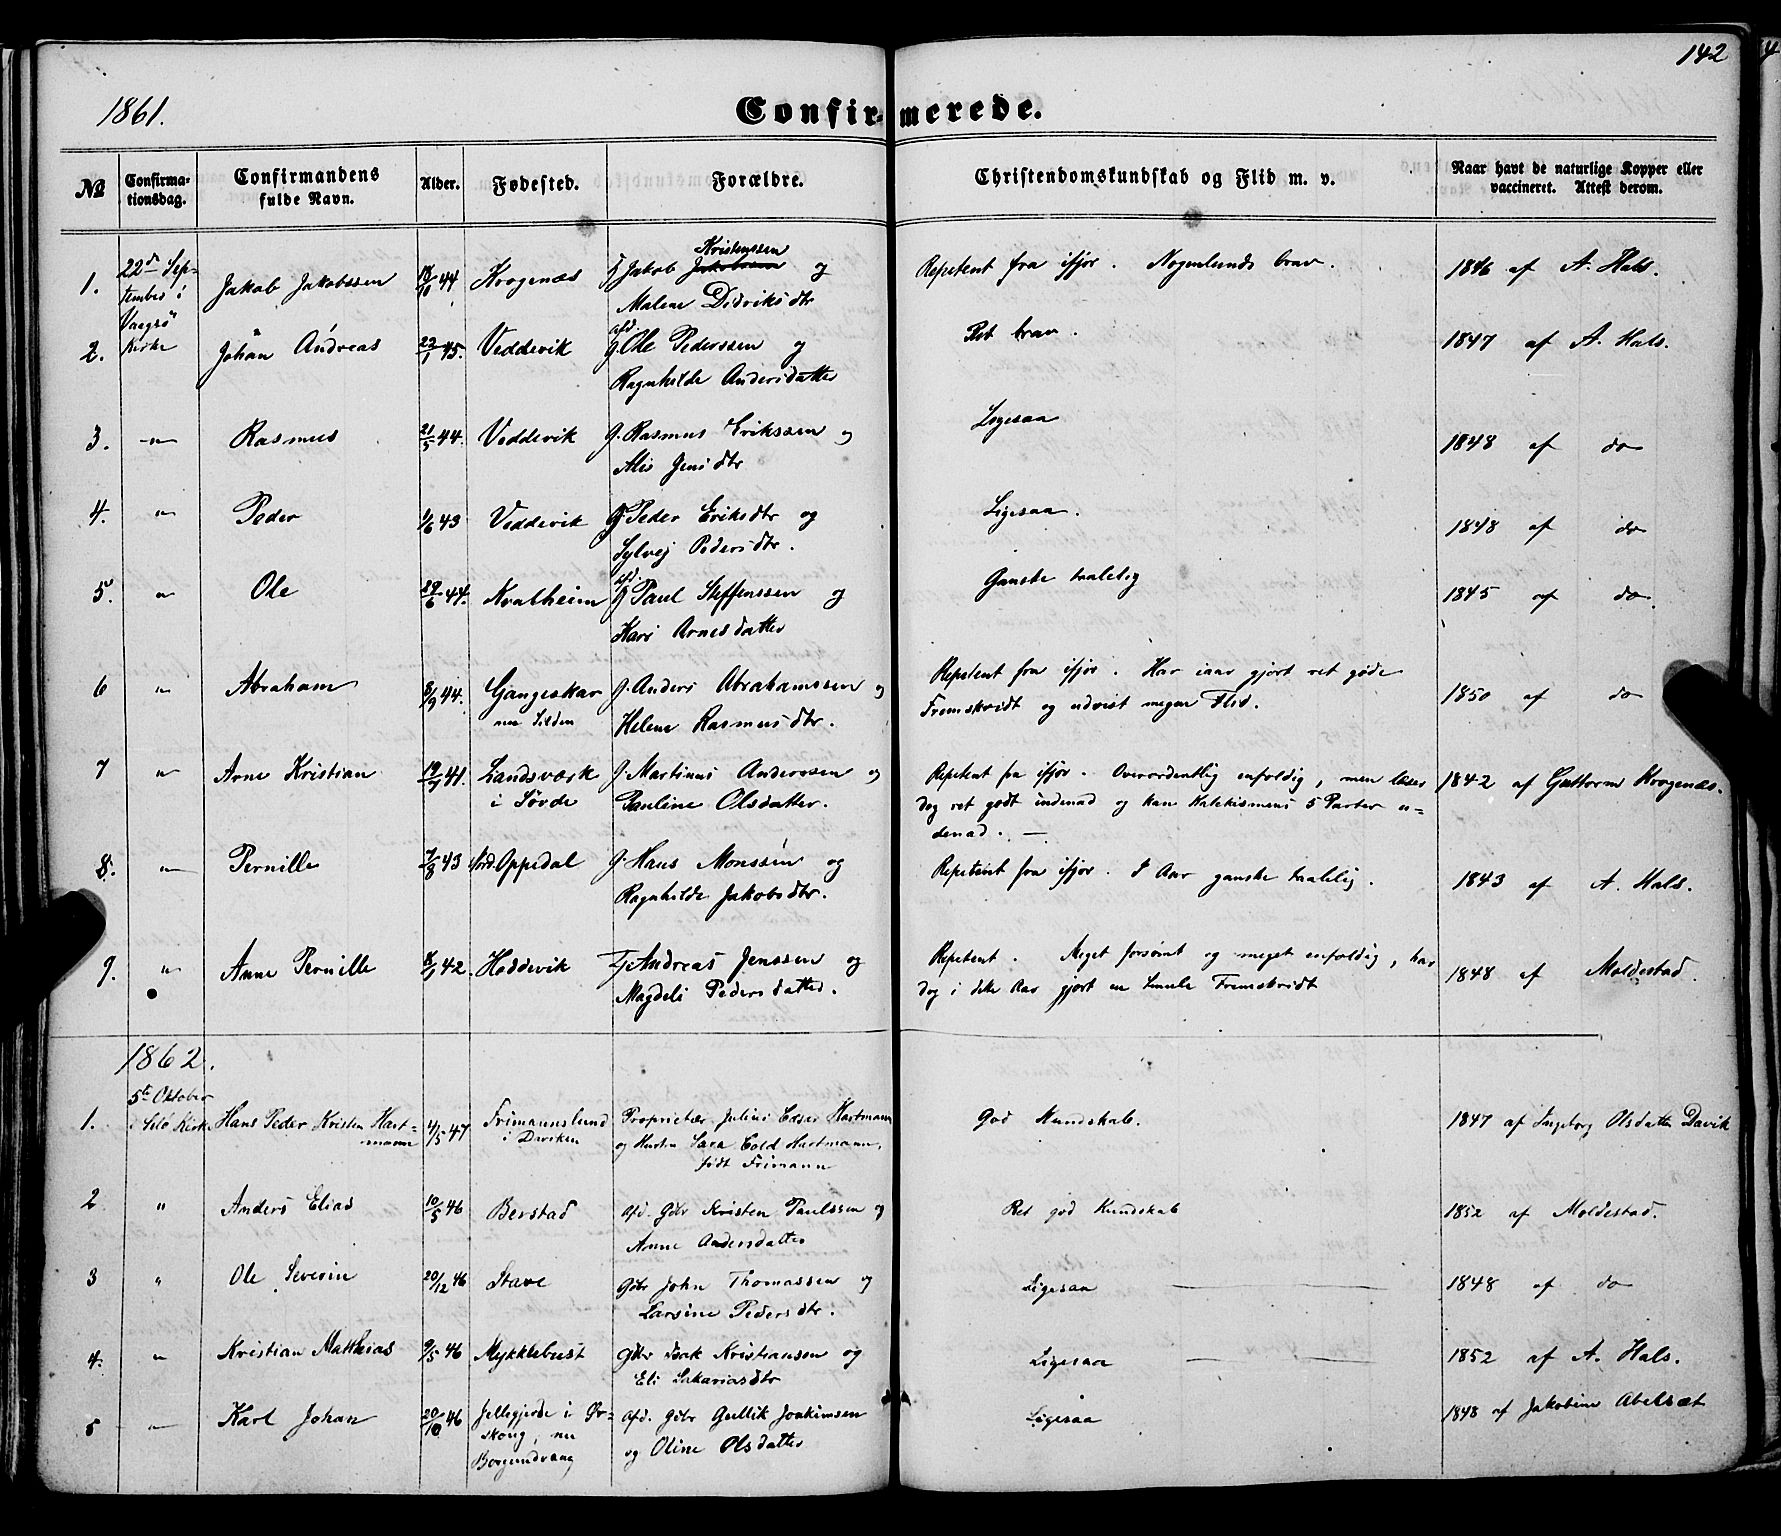 142
1861.
Confirmerede.
№ Confirmationsdag. Confirmandens fulde Navn. Alder. Fødested. Forældre. Christendomskundskab og Flid m. v. Naar havt de naturlige Kopper eller vaccineret. Attest derom.
1. 22de September i Vaagsø Kirke Jakob Jakobssen 18/10 44 Krogenæs Jakob Kristenssen og Repetent fra ifjor. Nogenlunde brav. 1846 af A. Hals.
Malene Didriksdtr
2. Johan Andreas 23/1 45. Veddevik afd. G. Ole Pederssen og Ret brav. 1847 af A. Hals.
Ragnhilde Andersdatter
3. -"- Rasmus 21/5 44. Veddevik G. Rasmus Erikssen og Ligesaa 1848 af do
Alis Jensdtr
4. " Peder 1/6 43 Veddevik G. Peder Eriksdtr og Ligesaa. 1848 af do
Sylvej Pedersdtr.
5. " Ole 29/6 44. Kvalheim afd. G. Paul Steffenssen og Ganske taalelig 1845 af do.
Kari Arnesdatter
6 " Abraham 8/9 44. Gangeskar G. Anders Abrahamssen og Repetent fra ifjor. Har iaar gjort ret gode 1850 af do
nu Silden Helene Rasmusdtr. Fremskridt og udvist megen Flid.
7 " Arne Kristian 41. Landsværk G. Martinus Anderssen og Repetent fra ifjor. Overordentlig enfoldig, men læser 1842 af Guttorm Krogenæs.
i Søvde Pauline Olsdatter. dog ret godt indenad og kan Katekismens 5 Parter u-
denad. —
8. " Pernille 7/8 43 Nord. Oppedal G. Hans Monssen og Repetent fra ifjor. I Aar ganske taalelig. 1843 af A. Hals.
Ragnhilde Jakobsdtr.
9. " Anne Pernille 42. Hoddevik Andreas Jenssen og Repetent. Meget forsømt og meget enfoldig, har 1848 af Moldestad.
Magdeli Pedersdatter. dog i dette Aar gjort en Smule Fremskridt
1862.
1. 5te Oktober i Selø Kirke Hans Peder Kristen Hartmann 4/5 47 Frimannslund Proprietær Julius Cæsar Hartmann God Kundskab. 1847 af Ingeborg Olsdatter Davik
i Daviken og Hustru Sara Cold Hartmann,
født Frimann
2 " Anders Elias 10/5 46 Berstad Afd. Gbr Kristen Paulssen og Ret god Kundskab 1852 af Moldestad.
Anne Andersdatter
3 " Ole Severin 20/12 46 Stave Gbr John Thomassen og Ligesaa 1848 af do
Larsine Pedersdtr.
4. " Kristian Matthias 9/5 46 Mykklebust Gbr Isak Kristiansen og Ligesaa 1852 af A. Hals.
Eli Sakariasdtr
5 " Karl Johan 20/10 46 Jellegjerde i Ør- Afd. Gbr Gullik Joakimsen Ligesaa 1848 af Jakobine Abelsæt
skoug, nu og Oline Olsdatter
Borgundvaag